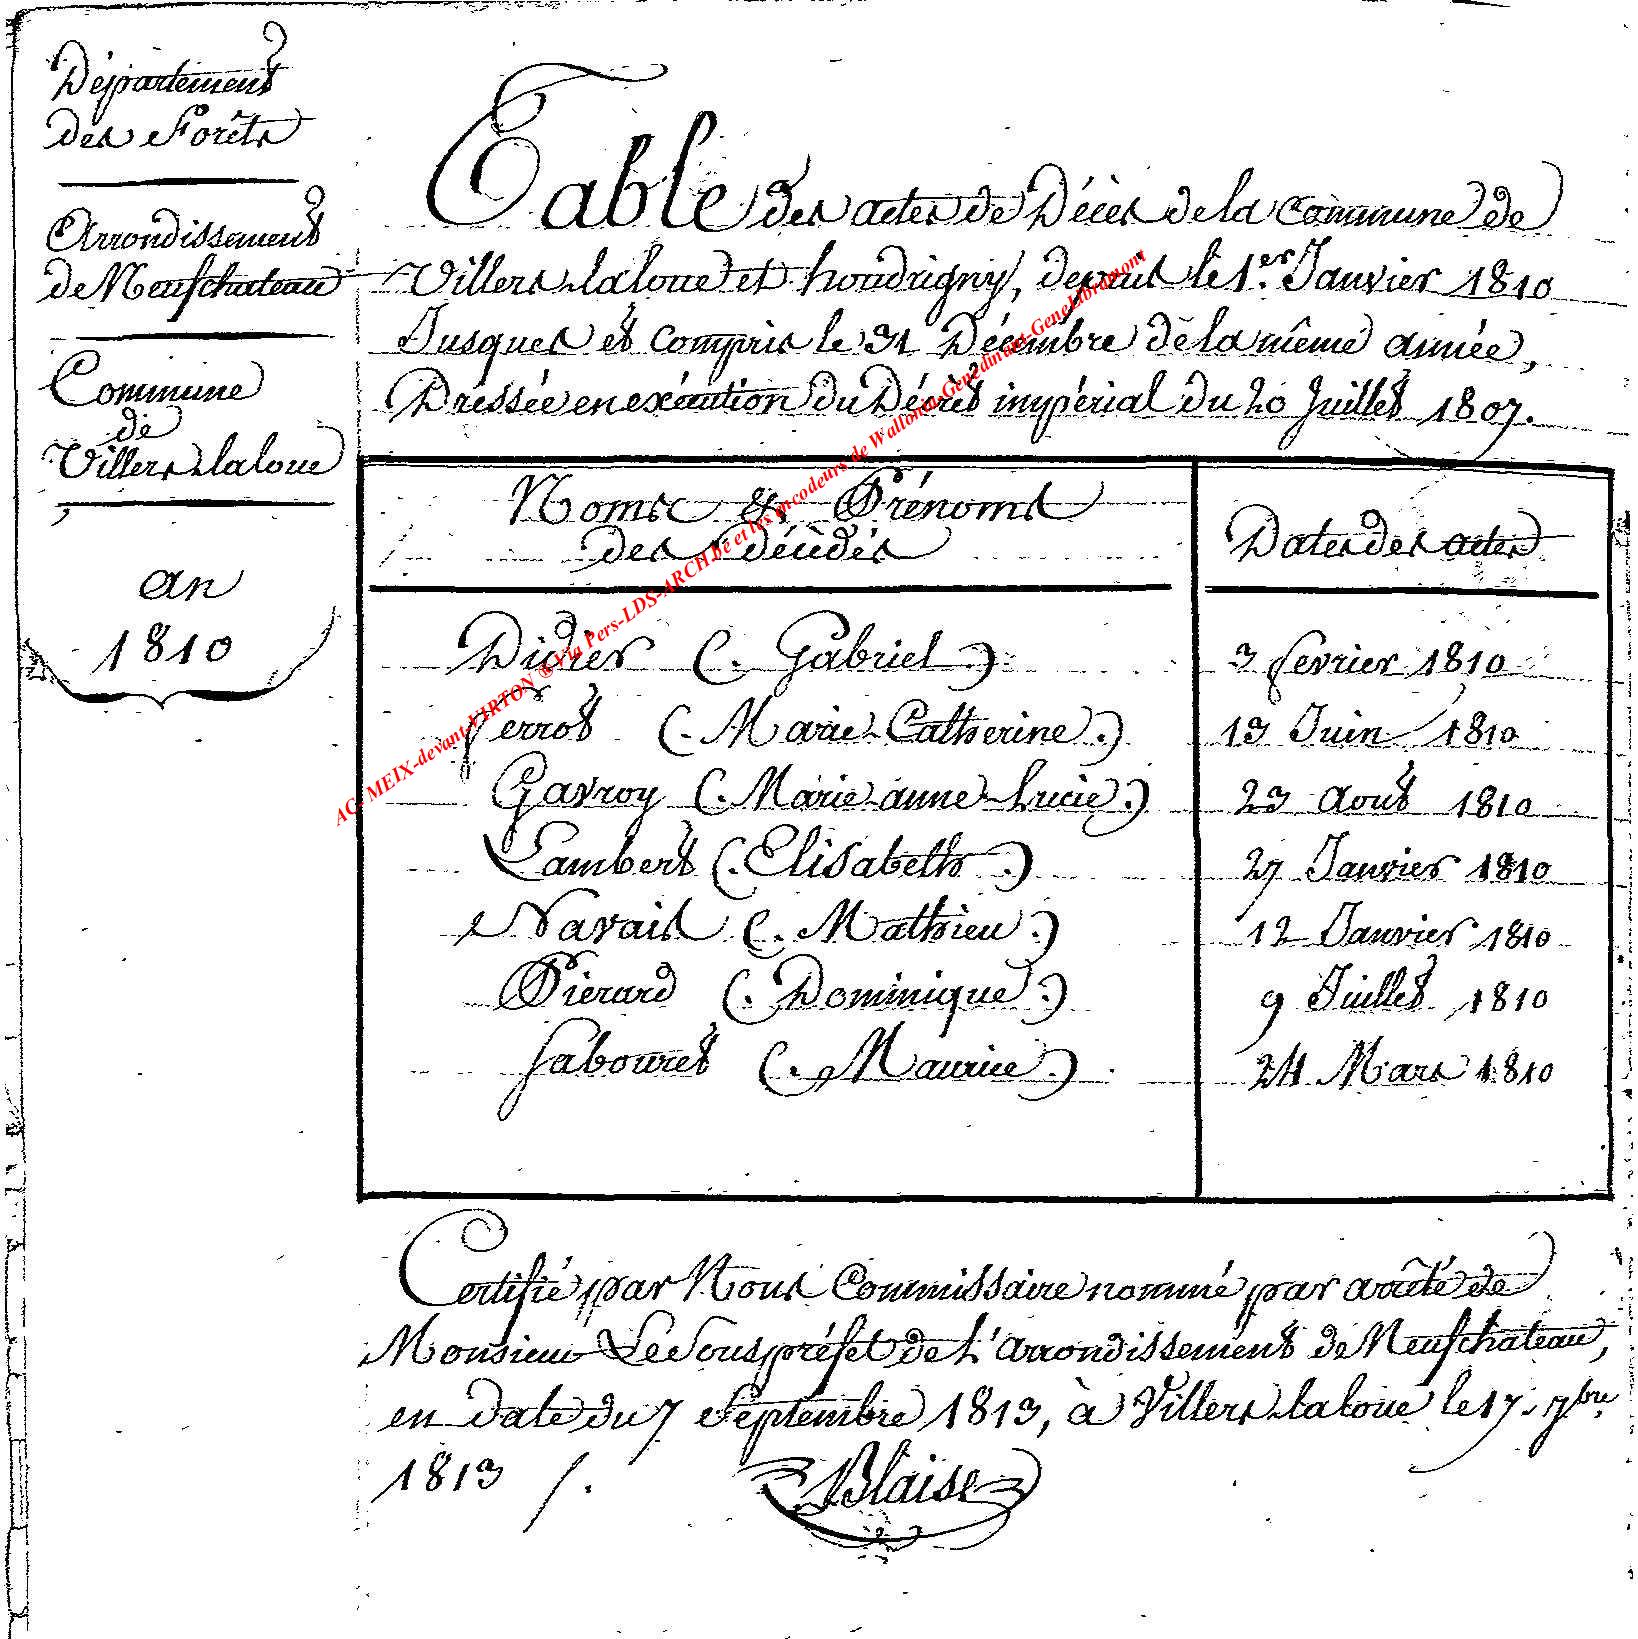 Département
des Forêts
Arrondissement
de Neufchateau
Commune
de
Villers-laloue
an
1810
Table des actes de Décès de la Commune de
Villers-laloue et houdrigny, depuis le 1.er Janvier 1810
Jusques et compris le 31 Décembre de la même année,
Dressée en exécution du Décrèt impérial du 20 Juillet 1807.
Noms & Prénoms
des décédés
Dates des actes
Didier (. Gabriel .) 3 fevrier 1810
ferrot (. Marie-Catherine .) 13 Juin 1810
Gavroy (. Marie-anne-Lucie .) 23 Aout 1810
Lambert (. Elisabeth .) 27 Janvier 1810
Navais (. Mathieu .) 12 Janvier 1810
Pierard (. Dominique .) 9 Juillet 1810
Sabouret (. Maurice .) 24 Mars 1810
Certifié par Nous Commissaire nommé par arrêté de
Monsieur Le Sous préfet de L'arrondissement de Neufchateau,
en date du 7 Septembre 1813, à Villers-laloue le 17. 7bre
1813 /.
Blaise
AG- MEIX-devant-VIRTON ® Via Pers-LDS-ARCH.be et les encodeurs de Wallonia-Genedinant-GeneLibramont